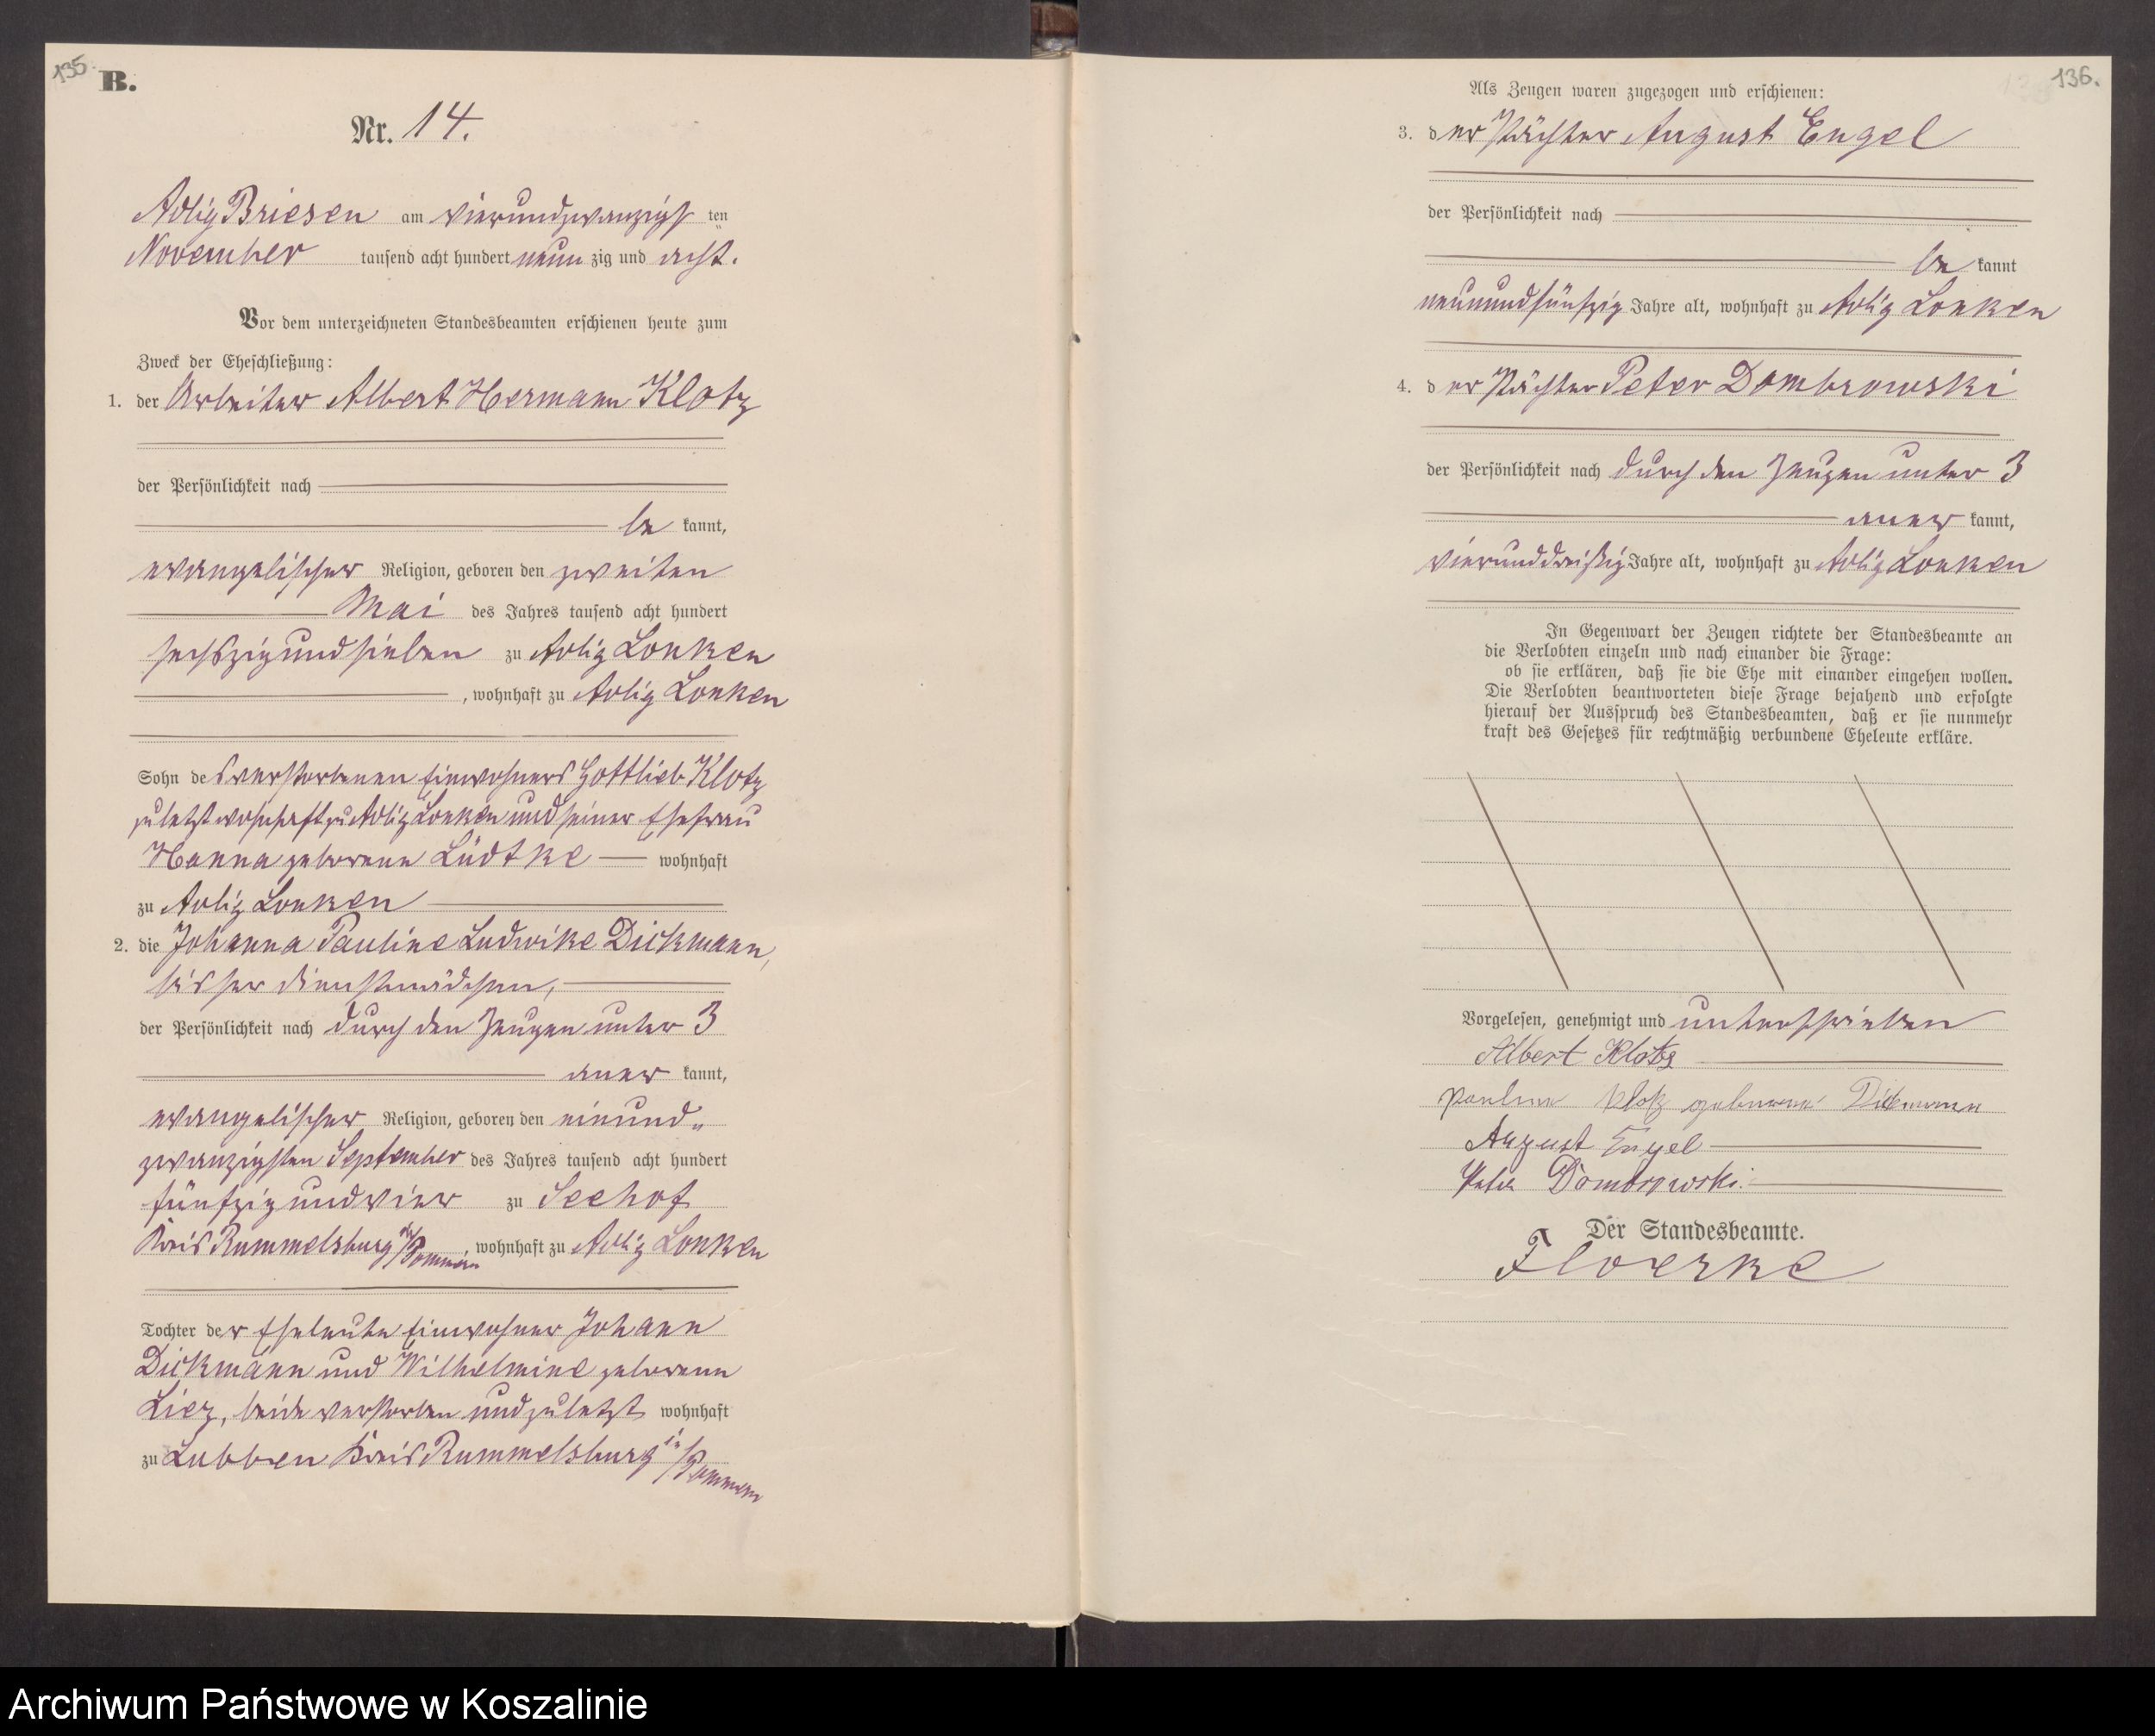 135.
B.
Nr. 14.
Adlig Briesen am vierundzwanzigsten
November tausend acht hundert neunzig und acht.
Vor dem unterzeichneten Standesbeamten erschienen heute zum
Zweck der Eheschließung:
1. der Arbeiter Albert Hermann Klotz
der Persönlichkeit nach
bekannt,
evangelischer Religion, geboren den zweiten
Mai des Jahres tausend acht hundert
sechszig und sieben zu Adlig Lonken
, wohnhaft zu Adlig Lonken
Sohn des verstorbenen Einwohners Gottlieb Klotz
zuletzt wohnhaft zu Adlig Lonken und seiner Ehefrau
Hanna geborene Lüdtke wohnhaft
zu Adlig Lonken
2. die Johanna Pauline Ludwike Dickmann,
bisher Dienstmädchen,
der Persönlichkeit nach durch den Zeugen unter 3
anerkannt,
evangelischer Religion, geboren den einund„
zwanzigsten September des Jahres tausend acht hundert
fünfzig und vier zu Seehof
Kreis Rummelsburg i/Pommern, wohnhaft zu Adlig Lonken
Tochter der Eheleute Einwohner Johann
Dickmann und Wilhelmine geborene
Liez, beide verstorben und zuletzt wohnhaft
zu Lubben Kreis Rummelsburg i/Pommern
136.
Als Zeugen waren zugezogen und erschienen:
3. der Pächter August Engel
der Persönlichkeit nach
bekannt
neunundfünfzig Jahre alt, wohnhaft zu Adlig Lonken
4. der Pächter Peter Dombrowski
der Persönlichkeit nach durch den Zeugen unter 3
anerkannt,
vierunddreißig Jahre alt, wohnhaft zu Adlig Lonken
In Gegenwart der Zeugen richtete der Standesbeamte an
die Verlobten einzeln und nach einander die Frage:
ob sie erklären, daß sie die Ehe mit einander eingehen wollen.
Die Verlobten beantworteten diese Frage bejahend und erfolgte
hierauf der Ausspruch des Standesbeamten, daß er sie nunmehr
kraft des Gesetzes für rechtmäßig verbundene Eheleute erkläre.
Vorgelesen, genehmigt und unterschrieben
Albert Klotz
Pauline Klotz geborene Dickmann
August Engel
Peter Dombrowski.
Der Standesbeamte.
Floerke
Archiwum Państwowe w Koszalinie